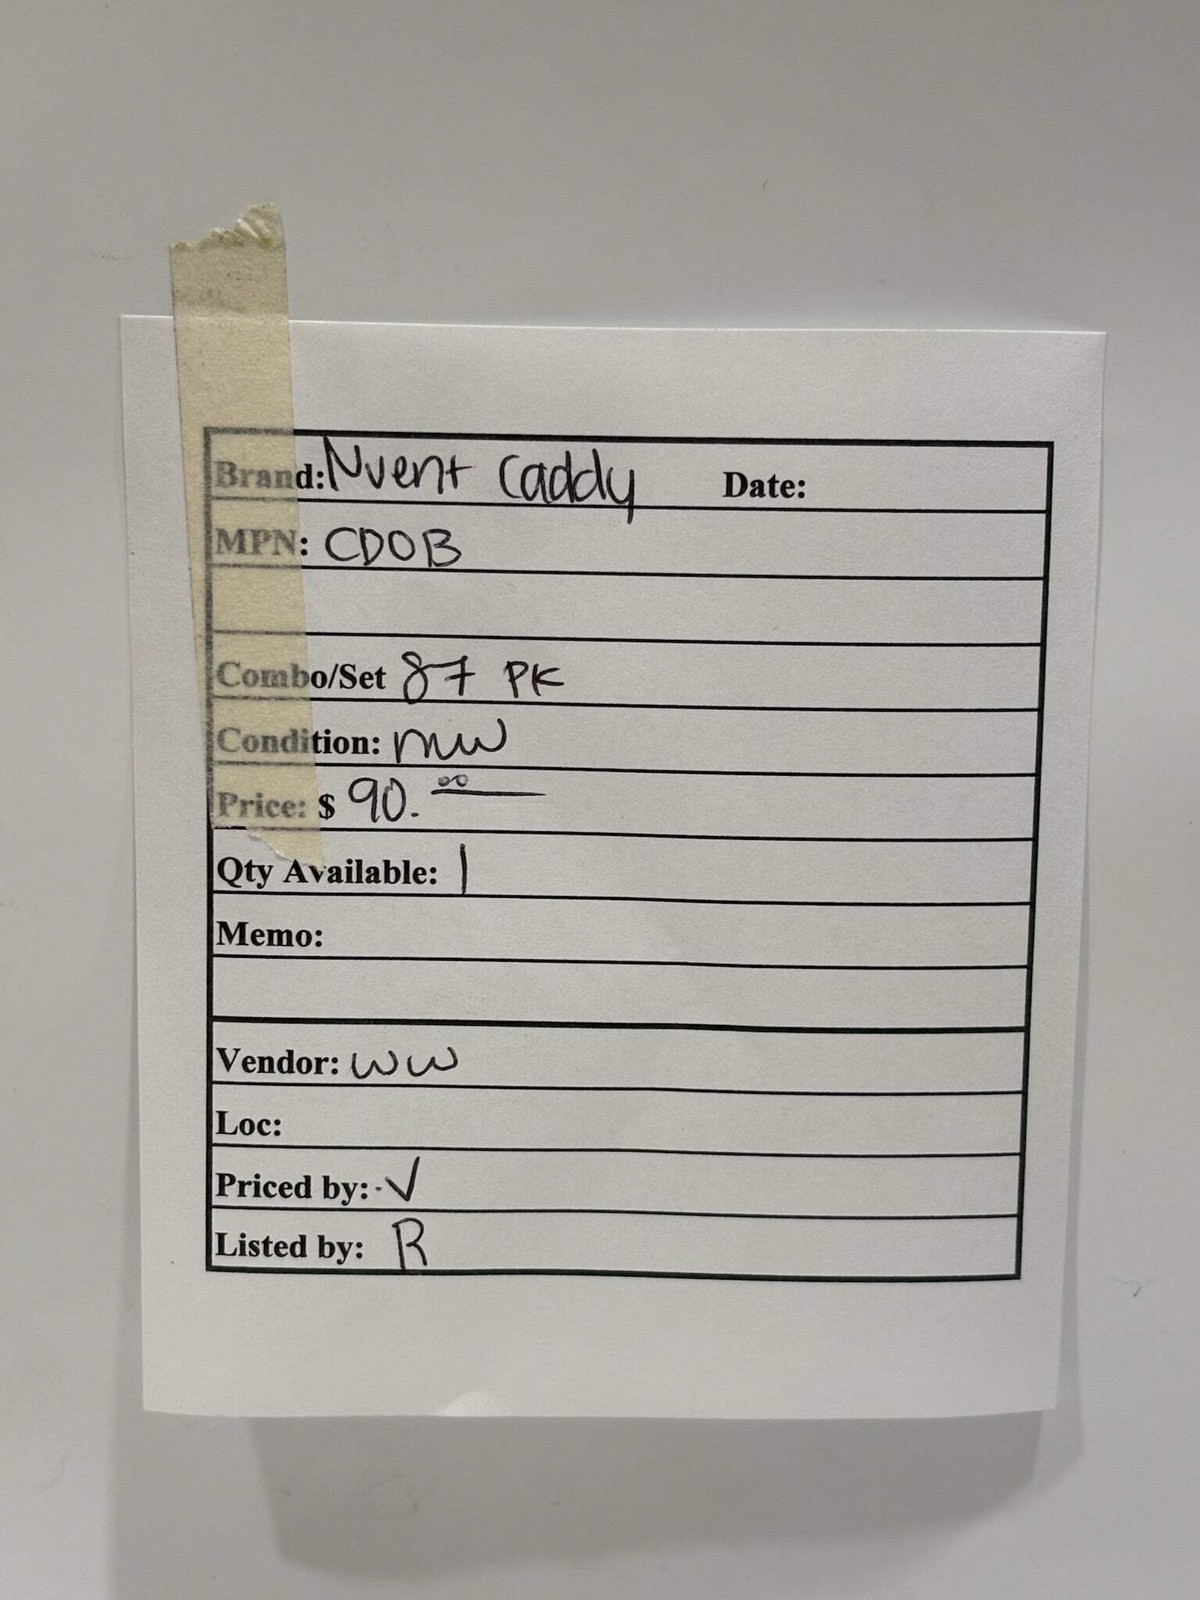 Brand: Nvent Caddy Date:
MPN: CD0B
Combo/Set 87 PK
Condition: NW
Price: $ 90.00
Qty Available: 1
Memo:
Vendor: WW
Loc:
Priced by: V
Listed by: R